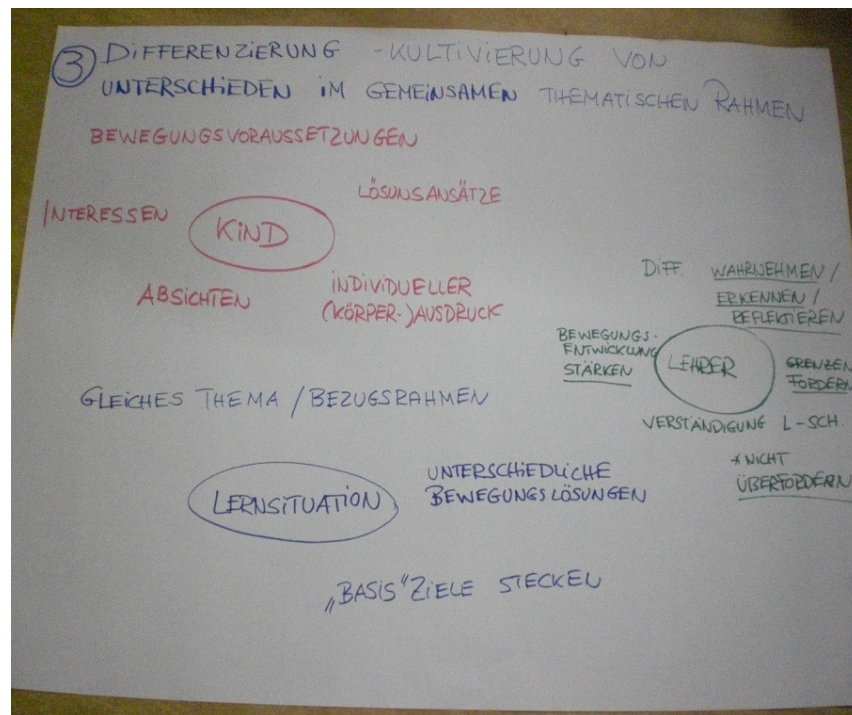 ③ DIFFERENZIERUNG - KULTIVIERUNG VON
UNTERSCHIEDEN IM GEMEINSAMEN THEMATISCHEN RAHMEN
BEWEGUNGSVORAUSSETZUNGEN
LÖSUNSANSÄTZE
INTERESSEN
KIND
ABSICHTEN
INDIVIDUELLER
(KÖRPER-)AUSDRUCK
DIFF. WAHRNEHMEN /
ERKENNEN /
REFLEKTIEREN
BEWEGUNGS-
ENTWICKLUNG
STÄRKEN
LEHRER
GRENZEN
FORDERN
VERSTÄNDIGUNG L-SCH.
* NICHT
ÜBERFORDERN
GLEICHES THEMA / BEZUGSRAHMEN
LERNSITUATION
UNTERSCHIEDLICHE
BEWEGUNGSLÖSUNGEN
„BASIS“ZIELE STECKEN